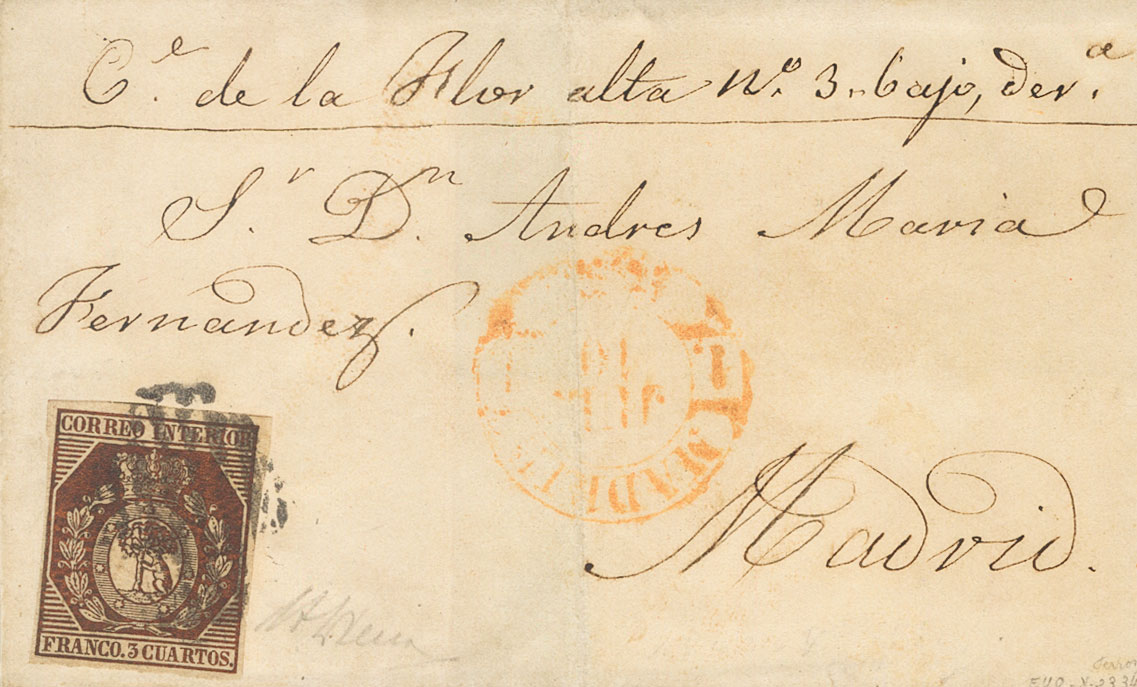 C.e de la Flor alta N.o 3. bajo, der.a
S.r D.n Andres Maria
Fernandez.
Madrid.
CORREO INTERIOR
FRANCO. 3 CUARTOS.